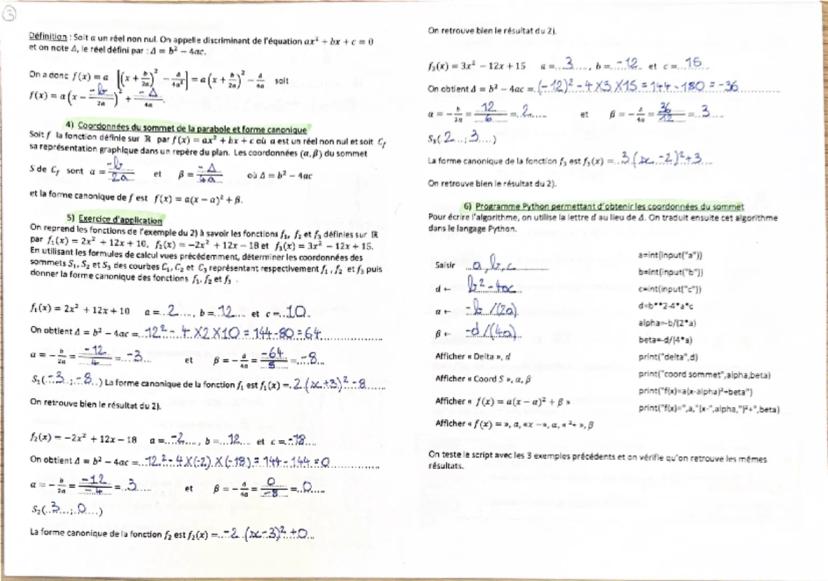 3
Définition : Soit a un réel non nul. On appelle discriminant de l'équation ax² + bx + c = 0
et on note Δ, le réel défini par : Δ = b² − 4ac.
On a donc f(x) = a [(x + b/2a)² − Δ/4a²] = a (x + b/2a)² − Δ/4a soit
f(x) = a (x − -b/2a)² + -Δ/4a
4) Coordonnées du sommet de la parabole et forme canonique
Soit f la fonction définie sur ℝ par f(x) = ax² + bx + c où a est un réel non nul et soit Cf
sa représentation graphique dans un repère du plan. Les coordonnées (α, β) du sommet
S de Cf sont α = -b/2a et β = -Δ/4a où Δ = b² − 4ac
et la forme canonique de f est f(x) = a(x − α)² + β.
5) Exercice d'application
On reprend les fonctions de l'exemple du 2) à savoir les fonctions f₁, f₂ et f₃ définies sur ℝ
par f₁(x) = 2x² + 12x + 10, f₂(x) = −2x² + 12x − 18 et f₃(x) = 3x² − 12x + 15.
En utilisant les formules de calcul vues précédemment, déterminer les coordonnées des
sommets S₁, S₂ et S₃ des courbes C₁, C₂ et C₃ représentant respectivement f₁, f₂ et f₃ puis
donner la forme canonique des fonctions f₁, f₂ et f₃ .
f₁(x) = 2x² + 12x + 10 a = 2, b = 12 et c = 10.
On obtient Δ = b² − 4ac = 12² - 4 X 2 X 10 = 144 - 80 = 64
α = − b/2a = -12/4 = -3 et β = − Δ/4a = -64/8 = -8
S₁( -3 ; -8 ) La forme canonique de la fonction f₁ est f₁(x) = 2 (x+3)² - 8
On retrouve bien le résultat du 2).
f₂(x) = −2x² + 12x − 18 a = -2, b = 12 et c = -18
On obtient Δ = b² − 4ac = 12² - 4 X (-2) X (-18) = 144 - 144 = 0
α = − b/2a = -12/-4 = 3 et β = − Δ/4a = 0/-8 = 0
S₂( 3 ; 0 )
La forme canonique de la fonction f₂ est f₂(x) = -2 (x-3)² + 0
On retrouve bien le résultat du 2).
f₃(x) = 3x² − 12x + 15 a = 3, b = -12 et c = 15
On obtient Δ = b² − 4ac = (-12)² - 4 X 3 X 15 = 144 - 180 = -36
α = − b/2a = 12/6 = 2 et β = − Δ/4a = 36/12 = 3
S₃( 2 ; 3 )
La forme canonique de la fonction f₃ est f₃(x) = 3 (x - 2)² + 3
On retrouve bien le résultat du 2).
6) Programme Python permettant d'obtenir les coordonnées du sommet
Pour écrire l'algorithme, on utilise la lettre d au lieu de Δ. On traduit ensuite cet algorithme
dans le langage Python.
Saisir a, b, c
d ← b² - 4ac
α ← -b/(2a)
β ← -d/(4a)
Afficher « Delta », d
Afficher « Coord S », α, β
Afficher « f(x) = a(x − α)² + β »
Afficher « f(x) = », a, «(x −», α, « )²+ », β
a=int(input("a"))
b=int(input("b"))
c=int(input("c"))
d=b**2-4*a*c
alpha=-b/(2*a)
beta=-d/(4*a)
print("delta",d)
print("coord sommet",alpha,beta)
print("f(x)=a(x-alpha)²+beta")
print("f(x)=",a,"(x-",alpha,")²+",beta)
On teste le script avec les 3 exemples précédents et on vérifie qu'on retrouve les mêmes
résultats.